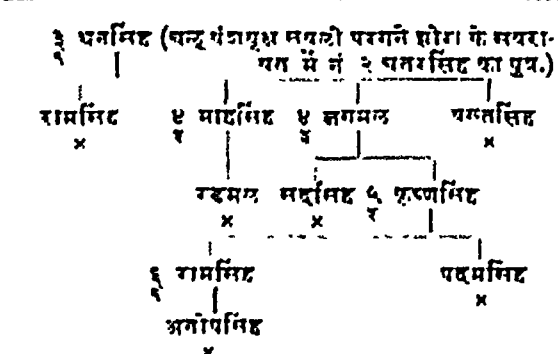 ३/१ धनसिंह (चन्द्र वंशवृक्ष सवली परगने झोरा के सवरा-
वत में नं २ चतरसिंह का पुत्र.)
रामसिंह ४/१ माहसिंह ४/२ जगमल वखतसिंह
× ×
रडमल सदासिंह ५/१ कृष्णसिंह
× ×
६/१ रामसिंह पदमसिंह
×
अनोपसिंह
×